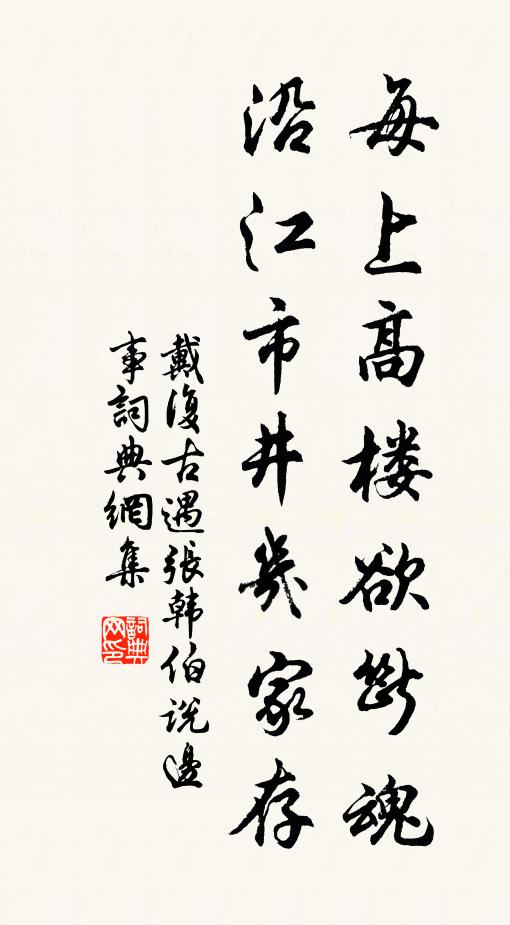 每上高楼欲断魂
沿江市井几家存
戴復古遇張韩伯说邊
事詞典網集
詞典网印